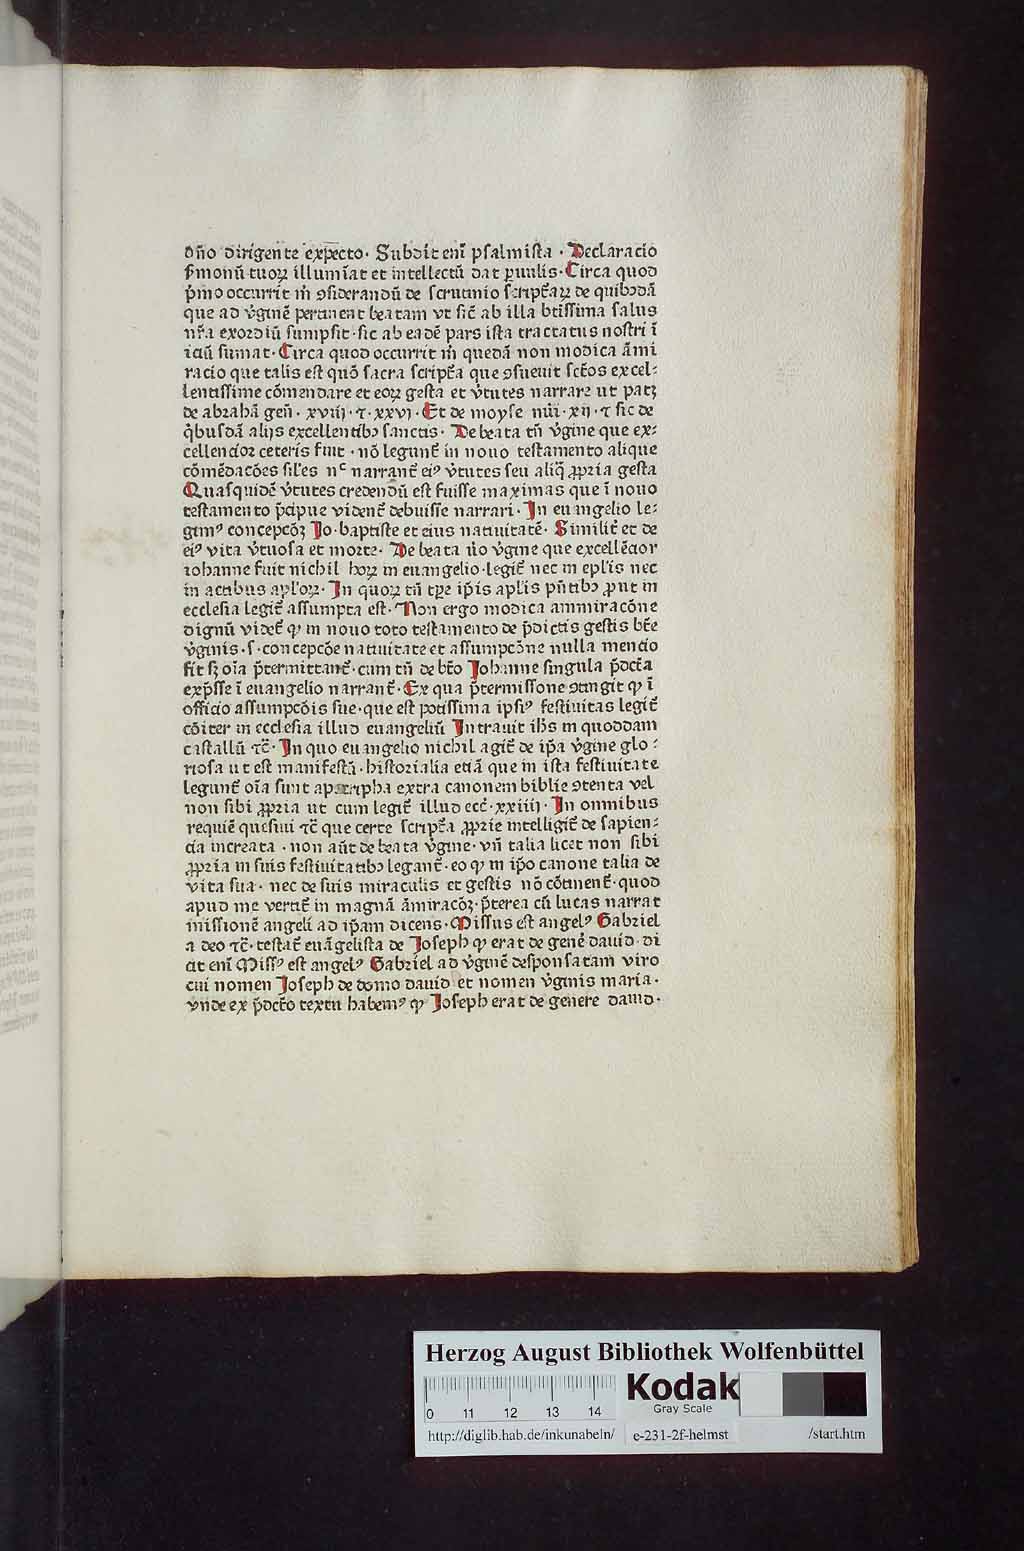 dño dirigente expecto. Subdit eni̅ psalmista . Declaracio
s̅monu̅ tuoꝝ illumi̅at et intellectu̅ dat ꝑuulis. Circa quod
p̅mo occurrit m̅ ꝯsiderandu̅ de scrutinio script̅aꝝ de quibꝫdā
que ad v̅gine̅ pertinent beatam vt sic̅ ab illa bt̅issima salus
nr̅a exordiu̅ sumpsit. sic ab eade̅ pars ista tractatus nostri i̅
iciu̅ sumat. Circa quod occurrit m̅ quedā non modica a̅mi
racio que talis est quō sacra script̅a que ꝯsueuit sc̅tos excel-
lentissime co̅mendare et eoꝝ gesta et v̅tutes narrare ut patꝫ
de abrahā gen̅. xviij. ⁊. xxvj. Et de moyse nu̅i. xij. ⁊ sic de
q̅busdā alijs excellentibꝫ sanctis. De beata tn̅ v̅gine que ex-
cellencior ceteris fuit . no̅ legunt̅ in nouo testamento alique
co̅me̅daco̅es sil̅es nᶜ narrant̅ eiꝰ v̅tutes seu aliq̅ ꝓpria gesta
Quasquide̅ v̅tutes credendu̅ est fuisse maximas que i̅ nouo
testamento p̅cipue vident̅ debuisse narrari. In euangelio le-
gimꝰ concepco̅ꝫ Jo. baptiste et eius natiuitate̅. Similit̅ et de
eiꝰ vita v̅tuosa et morte. De beata u̅o v̅gine que excelle̅cior
iohanne fuit nichil hoꝝ in euangelio. legit̅ nec in ep̅lis nec
in actibus apl̅oꝝ. In quoꝝ tn̅ tp̅re ip̅is apl̅is pn̅tibꝫ ꝓut in
ecclesia legit̅ assumpta est. Non ergo modica ammiraco̅ne
dignu̅ videt̅ ꝙ in nouo toto testamento de p̅dictis gestis bt̅e
v̅ginis. s. concepco̅e natiuitate et assumpco̅ne nulla mencio
fit sꝫ oi̅a p̅termittant̅. cum tn̅ de bt̅o Johanne singula p̅dct̅a
exp̅sse i̅ euangelio narrant̅. Ex qua p̅termissione ꝯtingit ꝙ i̅
officio assumpco̅is sue. que est potissima ipsiꝰ festiuitas legit̅
co̅iter in ecclesia illud euangeliu̅ Intrauit ih̅s in quoddam
castallu̅ ⁊c̅. In quo euangelio nichil agit̅ de ip̅a v̅gine glo-
riosa ut est manifestu̅. historialia etiā que in ista festiuitate
legunt̅ oi̅a sunt apocripha extra canonem biblie ꝯtenta vel
non sibi ꝓpria ut cum legit̅ illud ecc̅. xxiiij. In omnibus
requie̅ quesiui ⁊c̅ que certe script̅a ꝓprie intelligit̅ de sapien-
cia increata . non au̅t de beata v̅gine. vn̅ talia licet non sibi
ꝓpria in suis festiuitatibꝫ legant̅. eo ꝙ in ip̅o canone talia de
vita sua. nec de suis miraculis et gestis no̅ co̅tinent̅. quod
apud me vertit̅ in magnā a̅miraco̅ꝫ. p̅terea cu̅ lucas narrat
missione̅ angeli ad ip̅am dicens. Missus est angelꝰ Gabriel
a deo ⁊c̅. testat̅ eua̅gelista de Joseph ꝙ erat de gene̅ dauid. di
cit eni̅ Missꝰ est angelꝰ Gabriel ad v̅gine̅ desponsatam viro
cui nomen Joseph de domo dauid et nomen v̅ginis maria.
vnde ex p̅dct̅o textu habemꝰ ꝙ Joseph erat de genere dauid.
Herzog August Bibliothek Wolfenbüttel
0 11 12 13 14
Kodak
Gray Scale
http://diglib.hab.de/inkunabeln/ e-231-2f-helmst /start.htm